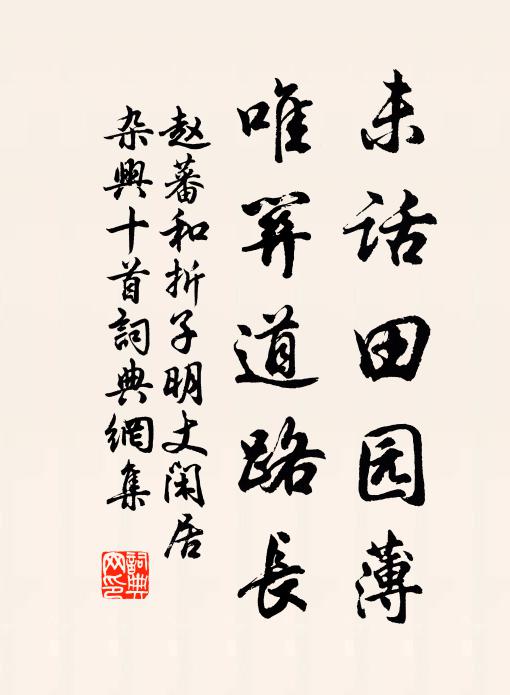 未话田园薄
唯道路長
赵蕃和折子明丈閑居
杂興十首詞典網集
詞典网印